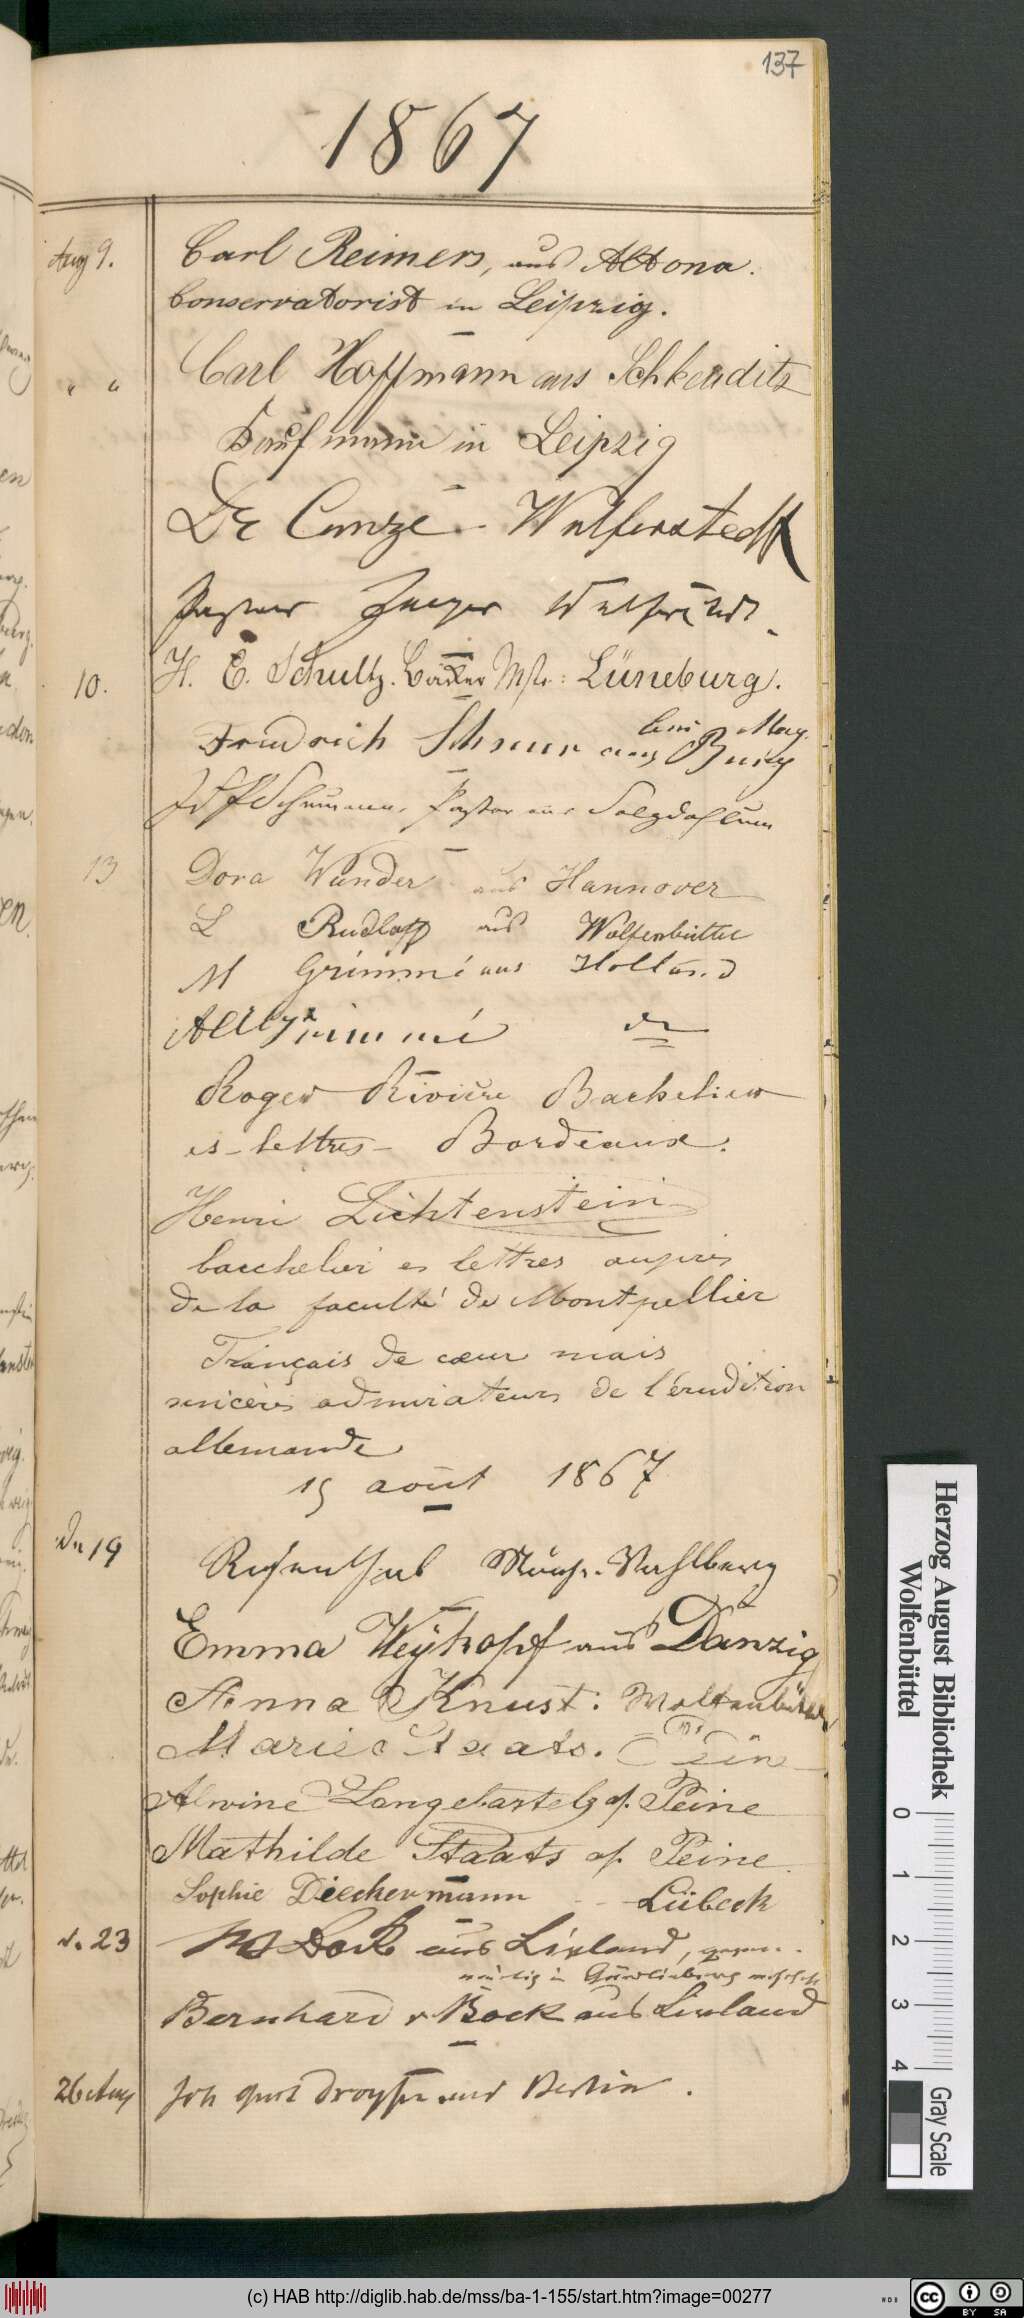 137
1867
Aug 9. Carl Reimers, aus Altona.
Conservatorist in Leipzig.
" " Carl Hoffmann aus Schkeuditz
Kaufmann in Leipzig
Dr Cunze - Wulferstedt
Pastor Jaeger Wulferstedt.
10. H. E. Schultz. Bäcker Mstr: Lüneburg.
Friedrich Schnur aus Burg
bei Mag.
Schumann, Pastor aus Salzdahlum
13 Dora Wunder aus Hannover
L Rudloff aus Wolfenbüttel
M Grimmé aus Holland
Grimmé do
Roger Rivière Bachelier
es-lettres - Bordeaux.
Henri Lichtenstein
bacchelier es lettres auprès
de la faculté de Montpellier
Français de cœur mais
sincères admirateurs de l'érudition
allemande
15 août 1867
Dn 19 Rosenthal Vahlberg
Emma Weykopf aus Danzig
Anna Knust. Wolfenbüttel
Marie Staats.
Alwine Langebartels a/. Peine
Mathilde Staats a/. Peine
Sophie Dieckermann - Lübeck
d. 23 Bock aus Livland,
Bernhard v Bock aus Livland
26 Aug Joh Gust Droysen aus Berlin.
Herzog August Bibliothek
Wolfenbüttel
0 1 2 3 4
Gray Scale
(c) HAB http://diglib.hab.de/mss/ba-1-155/start.htm?image=00277
WDB
cc BY SA